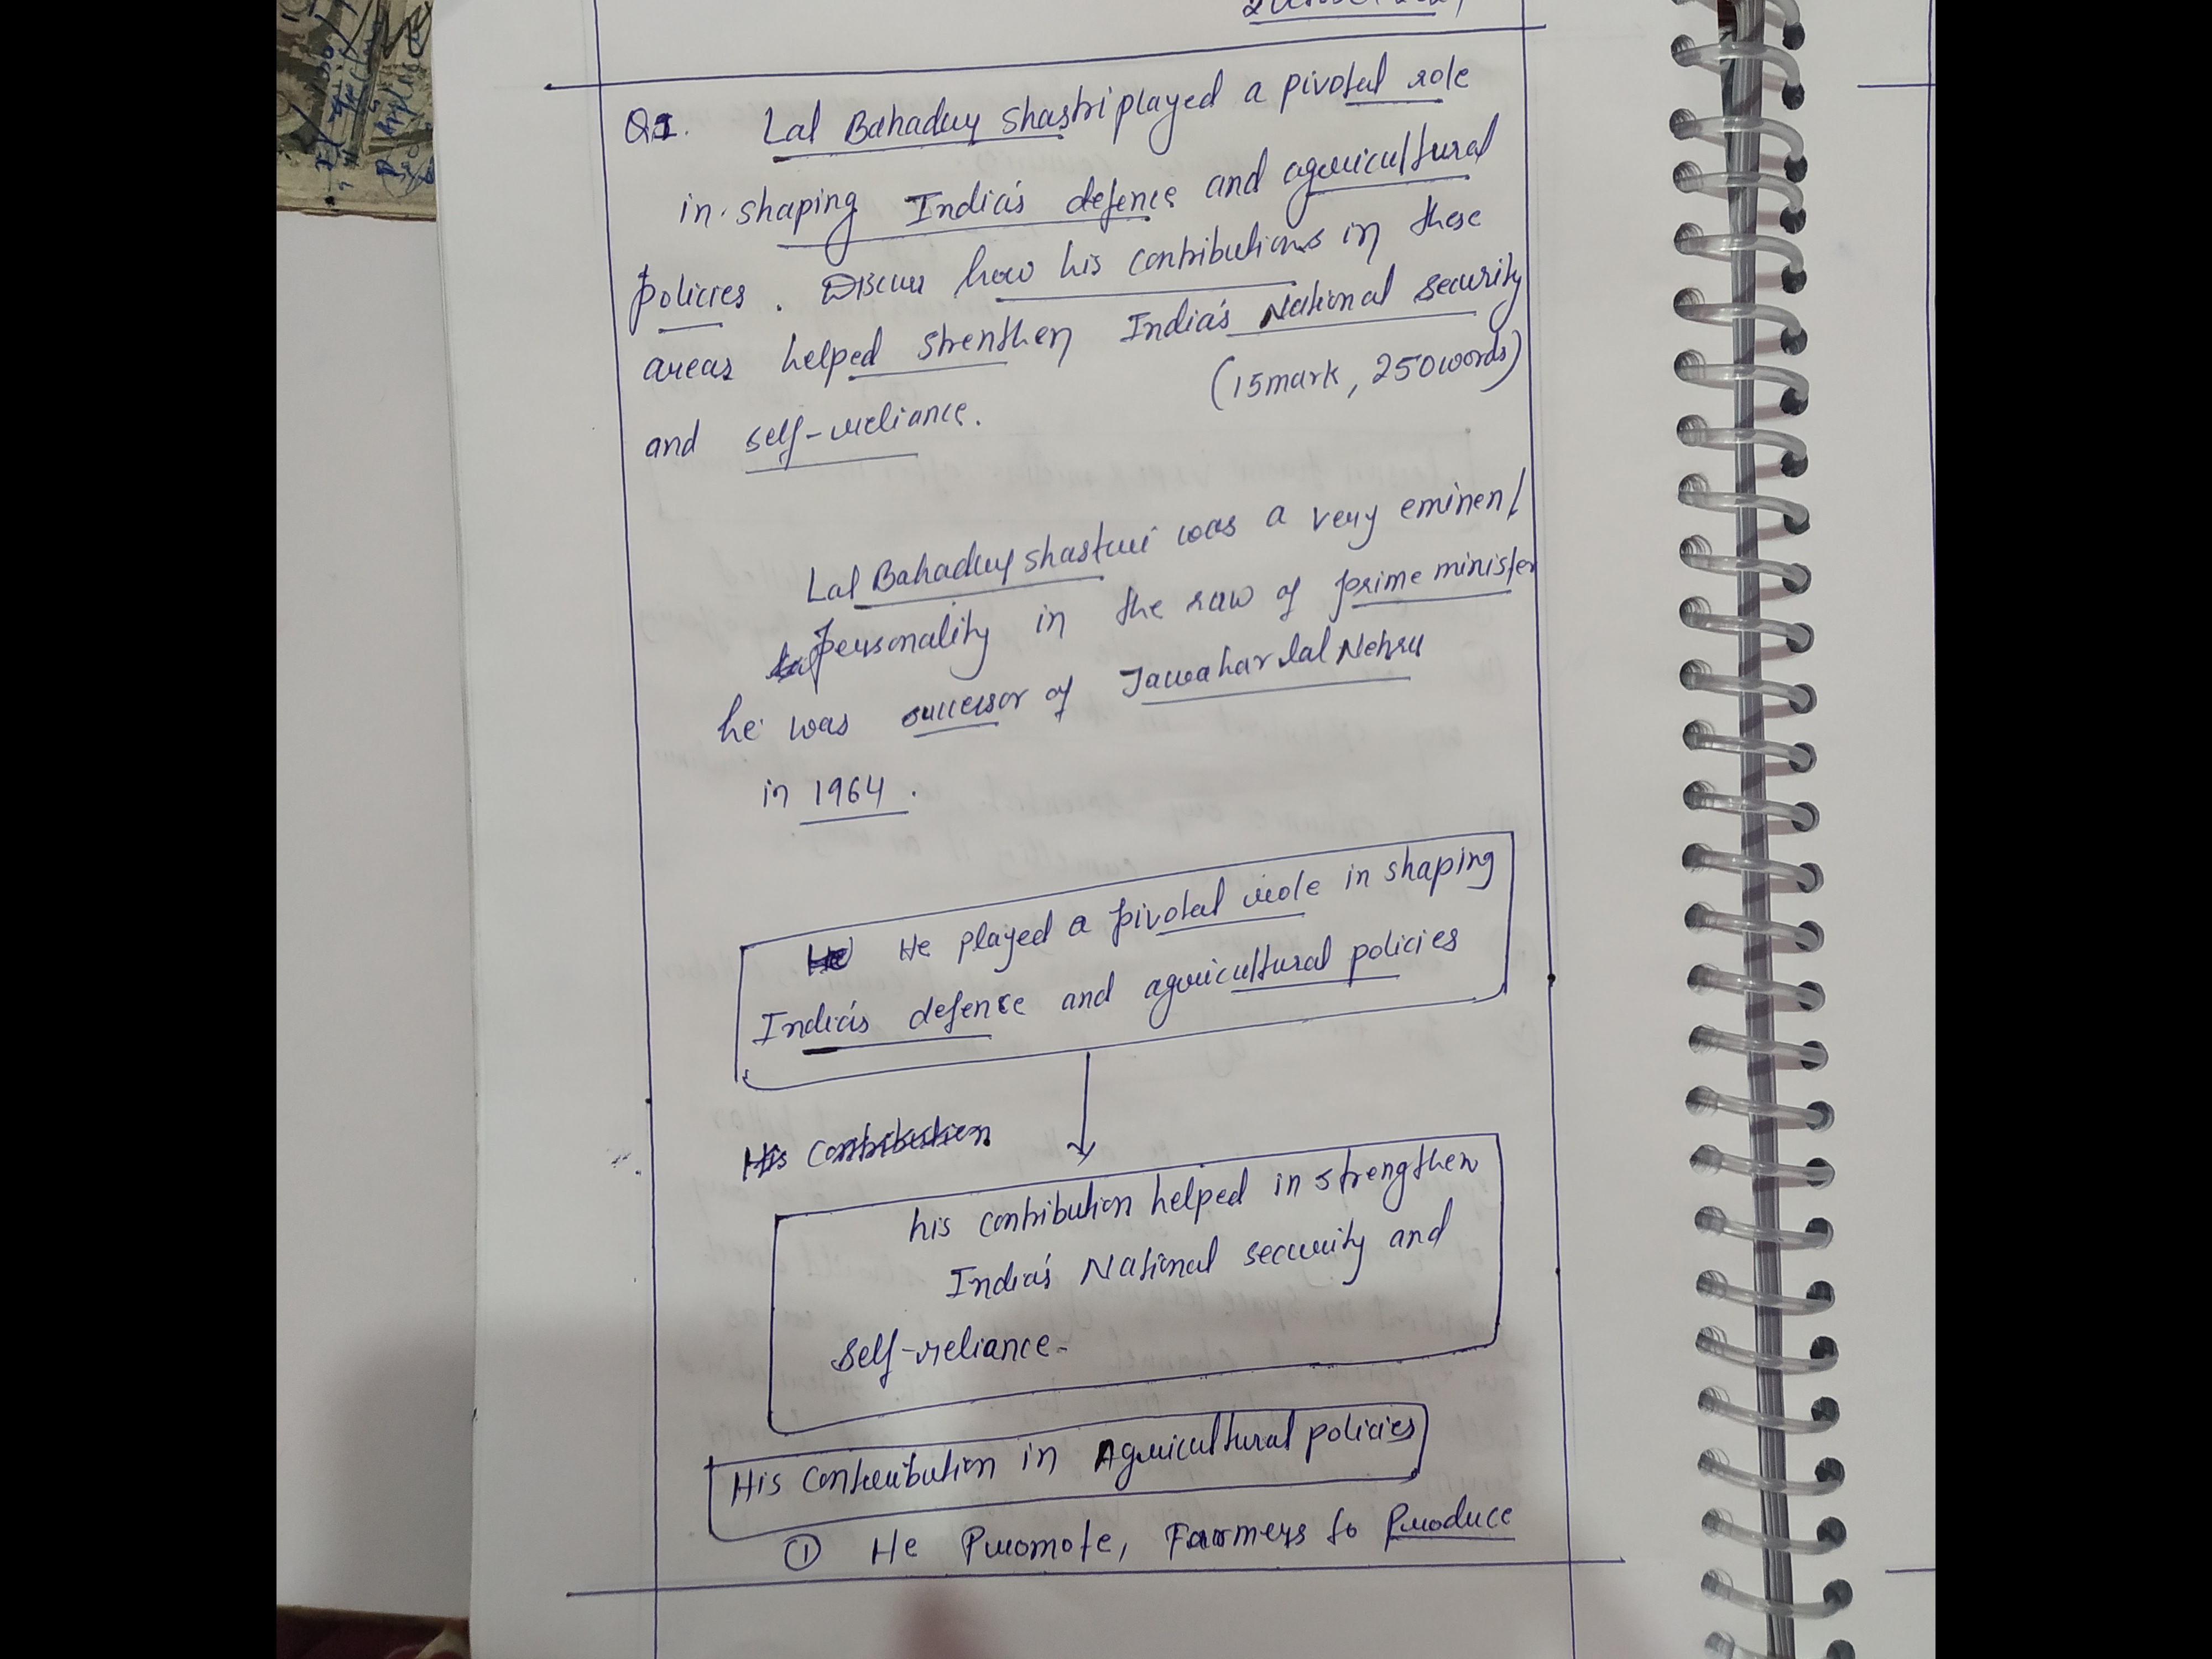 Q1. Lal Bahaduy Shastri played a pivotal role
in shaping India's defence and agricultural
policies. Discuss how his contributions in these
areas helped strenthen India's National security
(15mark, 250words)
and self-reliance.
Lal Bahaduy shastri was a very eminent
personality in the raw of prime minister
he was successor of Jawahar lal Nehru
in 1964.
He He played a pivotal role in shaping
India's defence and agricultural policies
His Contribution
his contribution helped in strengthen
India's National security and
self-reliance-
His Contribution in Agricultural policies
① He Promote, Farmers to Produce